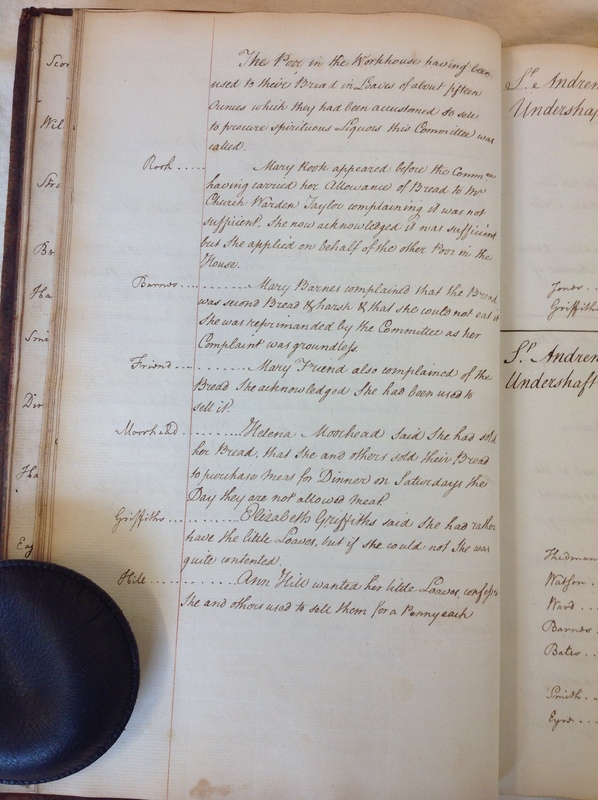 The Poor in the Workhouse having been
used to their Bread in Loaves of about fifteen
Ounces which they had been accustomed to sell
to procure spirituous Liquors this Committee was
called.
Rook ..... Mary Rook appeared before the Comm.ee
having carried her Allowance of Bread to Mr
Church Warden Taylor complaining it was not
sufficient. She now acknowledged it was sufficient
but She applied on behalf of the other Poor in the
House.
Barnes ........... Mary Barnes complained that the Bread
was second Bread & harsh & that she could not eat it
She was reprimanded by the Committee as her
Complaint was groundless.
Friend ........... Mary Friend also complained of the
Bread She acknowledged She had been used to
sell it.
Moorhead .......... Helena Moorhead said She had sold
her Bread, that She and others sold their Bread
to purchase Meat for Dinner on Saturdays the
Day they are not allowed Meat.
Griffiths ........... Elizabeth Griffiths said she had rather
have the little Loaves, but if she could not She was
quite contented.
Hill ........... Ann Hill wanted her little Loaves, confess'd
She and others used to sell them for a Penny each
Scor
Wil
Stro
Br
Ha
Smi
Dir
Ha
Ey
St. Andrew
Undershaf
Jones ..
Griffiths
St. Andrew
Undershaft
Thedman
Watson .
Ward ...
Barnes .
Bates ..
Smith ..
Eyre ...